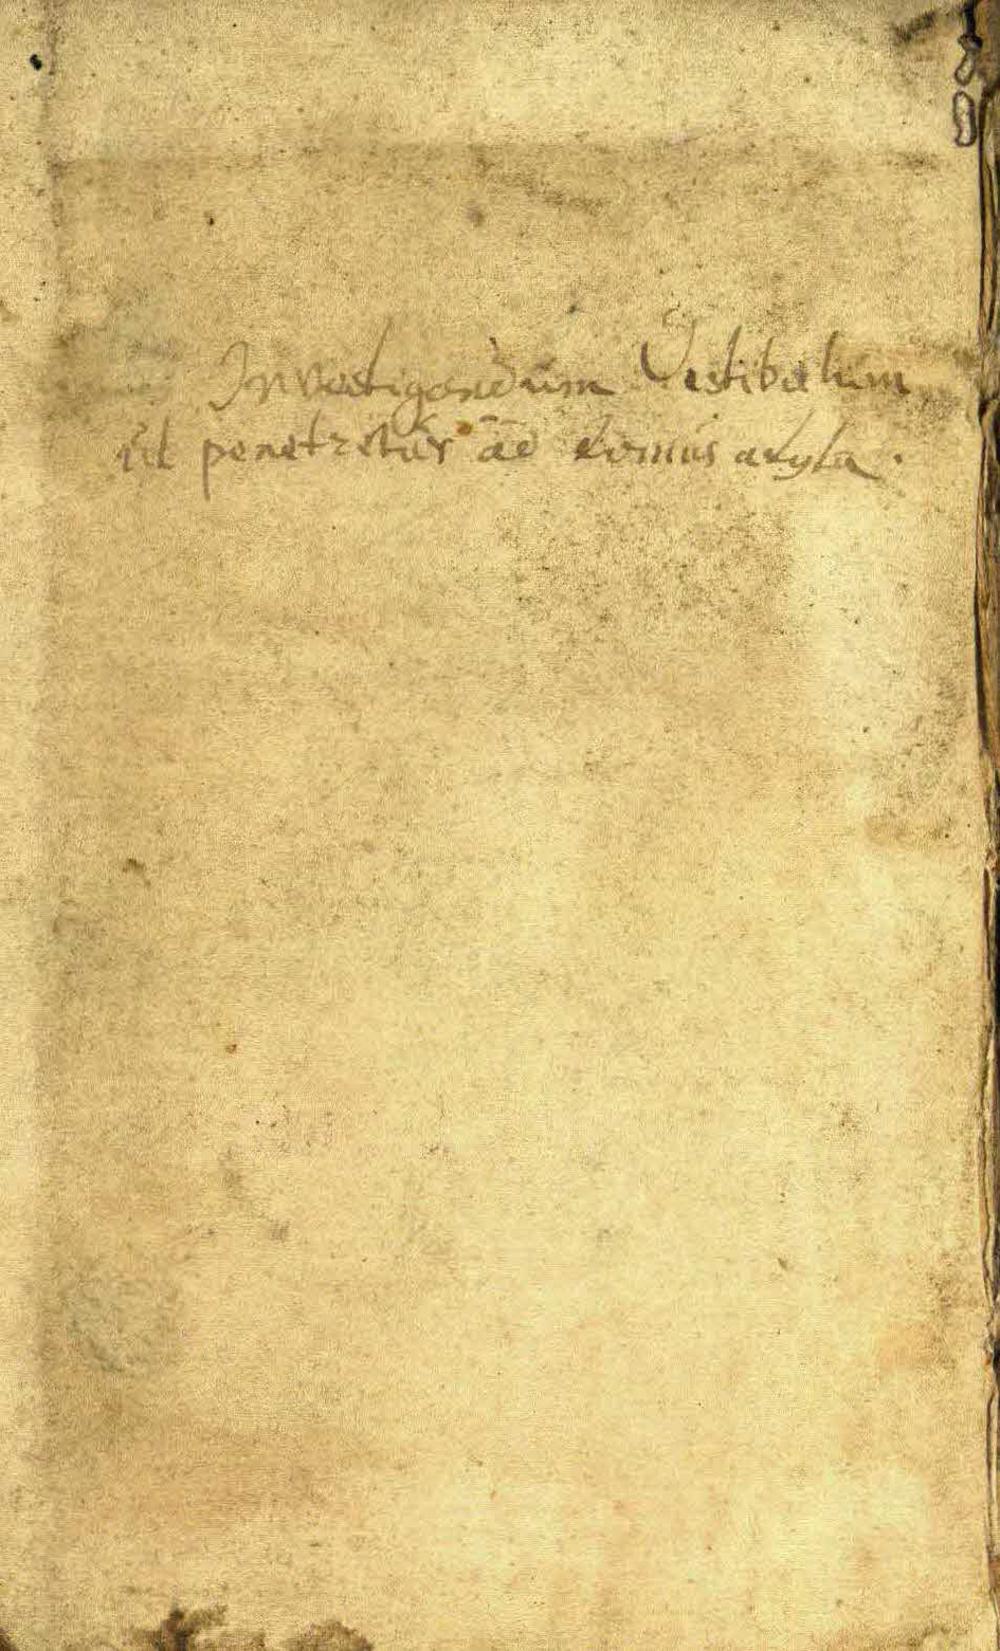 Investigandum Vestibulum
ut penetretur ad domus adyta.